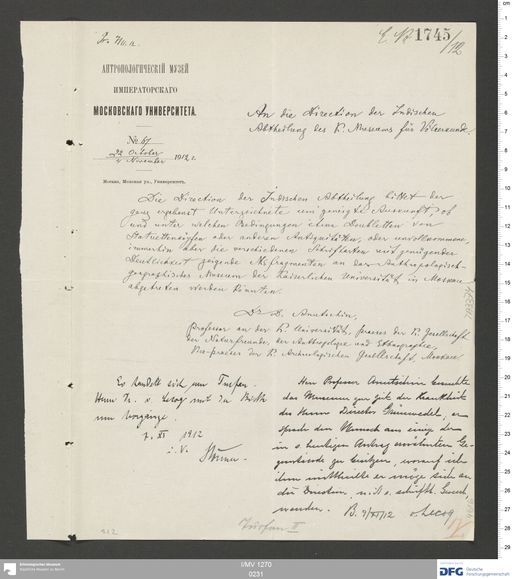 E. № 1745/12
АНТРОПОЛОГИЧЕСКІЙ МУЗЕЙ
ИМПЕРАТОРСКАГО
МОСКОВСКАГО УНИВЕРСИТЕТА.
№ 67
22 October
4 November 1912 г.
Москва, Моховая ул., Университетъ.
An die Direction der Indischen
Abtheilung des K. Museums für Völkerkunde.
Die Direction der Indischen Abtheilung bittet der
ganz ergebenst Unterzeichnete um geneigte Auskunft, ob
und unter welchen Bedingungen etwa Doubletten von
Statuettenköpfen oder anderen Antiquitäten, oder unvollkommene,
immerhin aber die verschiedenen Schriftarten mit genügender
Deutlichkeit zeigende Msfragmenten an das Anthropologisch-
geographische Museum der Kaiserlichen Universität in Moscau
abgetreten werden könnten.
Dr D. Anutschin,
Professor an der K. Universität, praeses der K. Gesellschaft
der Naturfreunde, der Anthropologie und Ethnographie,
Vice-praeses der K. Archeologischen Gesellschaft, Moscau.
Es handelt sich um Turfan.
Herrn Dr. v. Lecoq mit der Bitte
um Vorgänge.
7. XI 1912
i. V.
Herr Professor Anutschin besuchte
das Museum zur Zeit der Krankheit
des Herrn Director Grünwedel, er
sprach den Wunsch aus einige der
in s. heutigen Antrag erwähnten Ge-
genstände zu besitzen, worauf ich
ihm mittheilte er möge sich an
die Direction, schriftl. Gesuch
wenden. B. 9/XI/12 v. Lecoq
Turfan II
Ethnologisches Museum
Staatliche Museen zu Berlin
I/MV 1270
0231
DFG Deutsche
Forschungsgemeinschaft